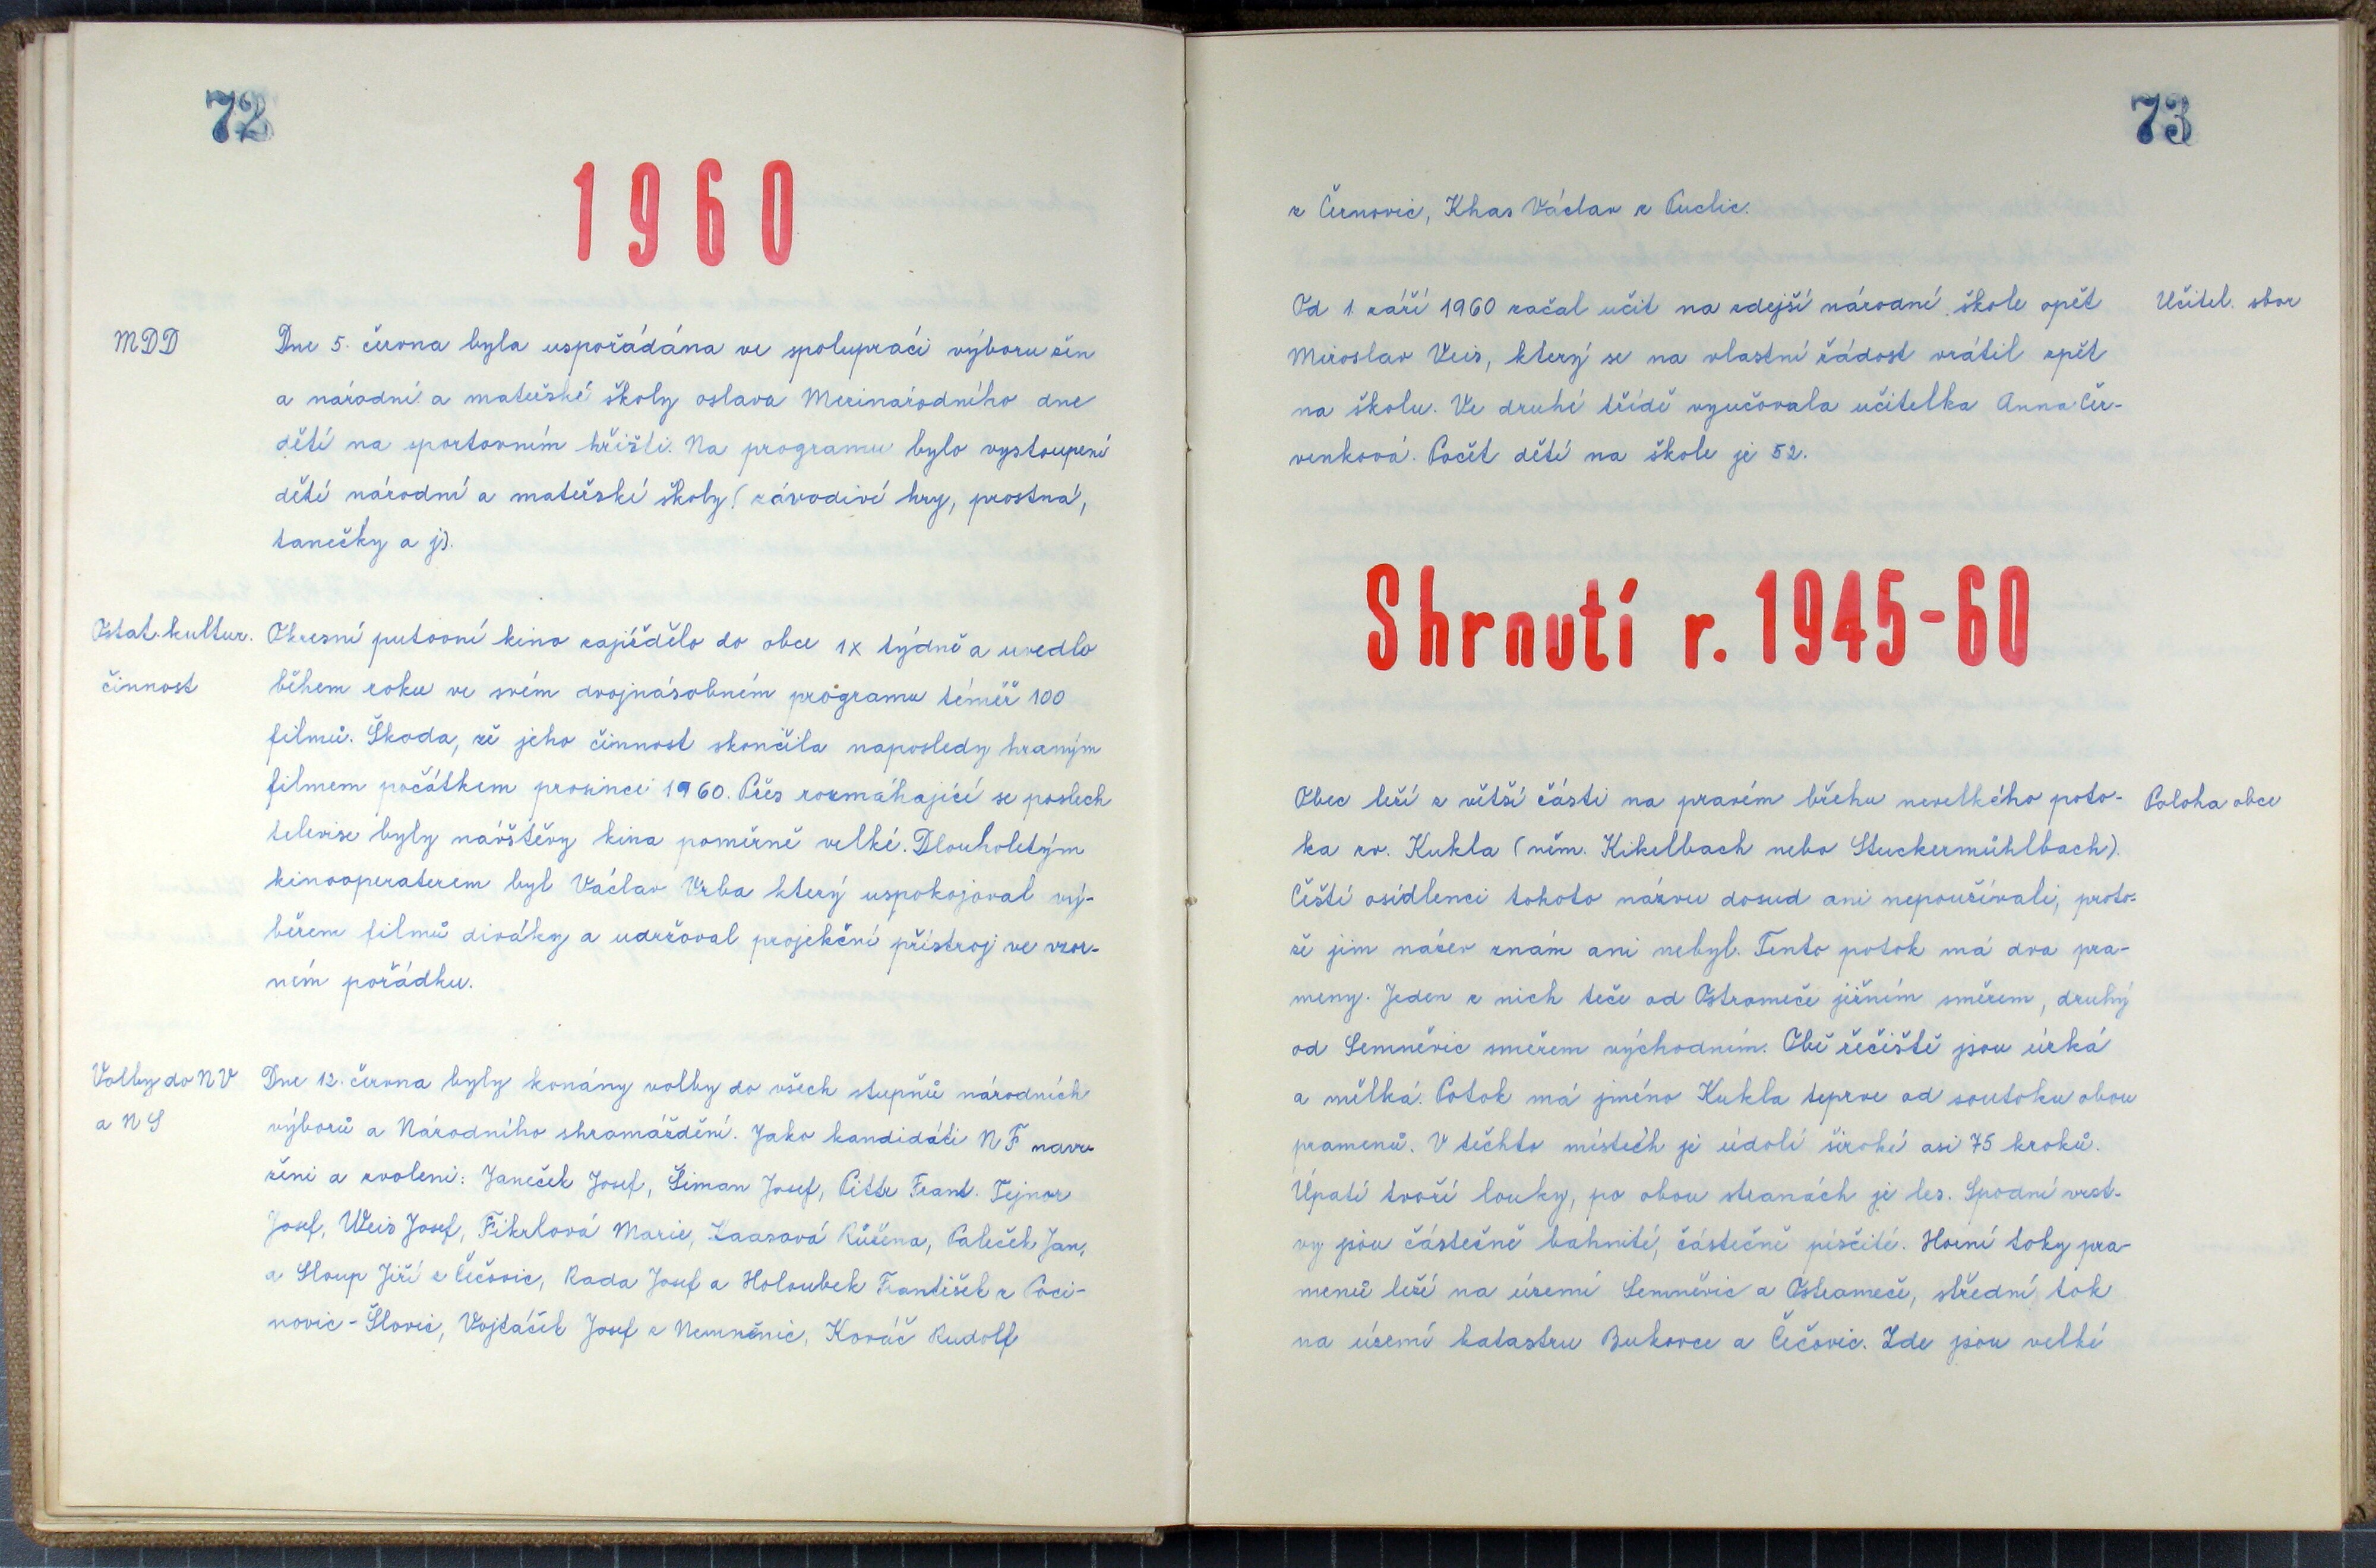 72
1960
MDD
Dne 5. června byla uspořádána ve spolupráci výboru žen
a národní a mateřské školy oslava Mezinárodního dne
dětí na sportovním hřišti. Na programu bylo vystoupení
dětí národní a mateřské školy (závodivé hry, prostná,
tanečky a j).
Ostat. kultur.
činnost
Okresní putovní kino zajíždělo do obce 1x týdně a uvedlo
během roku ve svém dvojnásobném programu téměř 100
filmů. Škoda, že jeho činnost skončila naposledy hraným
filmem počátkem prosince 1960. Přes rozmáhající se poslech
televise byly návštěvy kina poměrně velké. Dlouholetým
kinooperaterem byl Václav Vrba který uspokojoval vý-
běrem filmů diváky a udržoval projekční přístroj ve vzor-
ném pořádku.
Volby do NV
a NS
Dne 12. června byly konány volby do všech stupňů národních
výborů a Národního shromáždění. Jako kandidáti NF navr
ženi a zvoleni: Janeček Josef, Šiman Josef, Pittr Frant. Tejnor
Josef, Weis Josef, Fikrlová Marie, Laasová Růžena, Paleček Jan,
a Sloup Jiří z Čečovic, Rada Josef a Holoubek František z Poci-
novic - Šlovic, Vojtáček Josef z Nemněnic, Kováč Rudolf
73
z Černovic, Khas Václav z Puclic.
Učitel. sbor
Od 1. září 1960 začal učit na zdejší národní škole opět
Miroslav Veis, který se na vlastní žádost vrátil zpět
na školu. Ve druhé třídě vyučovala učitelka Anna Čer-
venková. Počet dětí na škole je 52.
Shrnutí r. 1945-60
Poloha obce
Obec leží z větší části na pravém břehu nevelkého poto-
ka zv. Kukla (něm. Kikelbach nebo Stuckermühlbach).
Čeští osídlenci tohoto názvu dosud ani nepoužívali, proto-
že jim název znám ani nebyl. Tento potok má dva pra-
meny. Jeden z nich teče od Ostromeče jižním směrem, druhý
od Semněvic směrem východním. Obě řečiště jsou úzká
a mělká. Potok má jméno Kukla teprve od soutoku obou
pramenů. V těchto místech je údolí široké asi 75 kroků.
Úpatí tvoří louky, po obou stranách je les. Spodní vrst-
vy jsou částečně bahnité, částečně písčité. Horní toky pra-
menů leží na území Semněvic a Ostromeče, střední tok
na území katastru Bukovce a Čečovic. Zde jsou velké